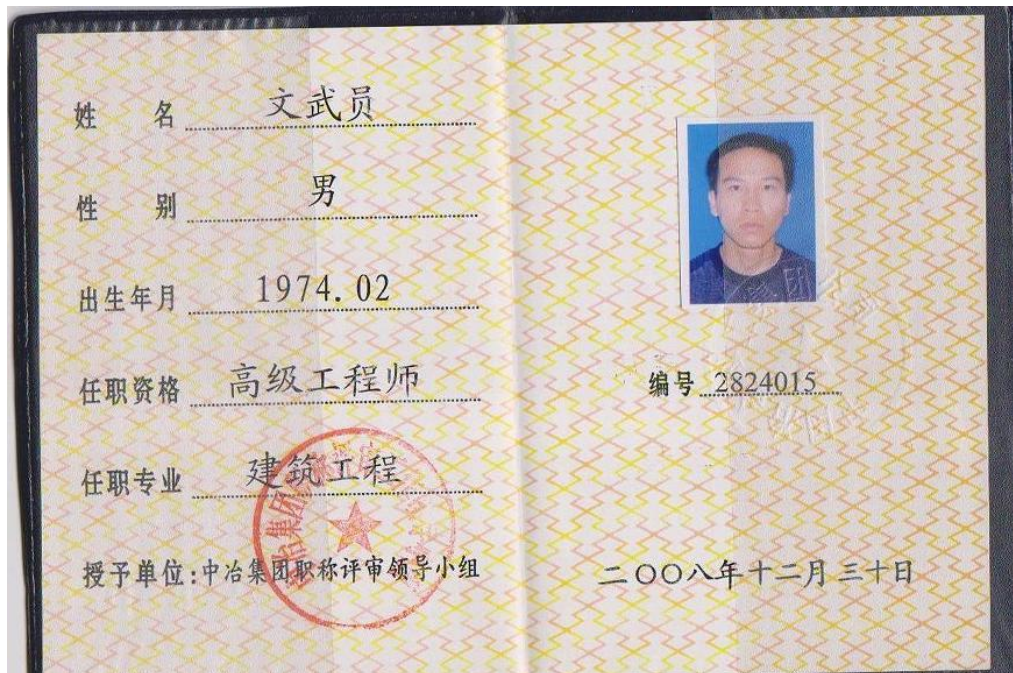 姓 名 文武员
性 别 男
出生年月 1974.02
任职资格 高级工程师
任职专业 建筑工程
授予单位:中冶集团职称评审领导小组
编号 2824015
二〇〇八年十二月三十日